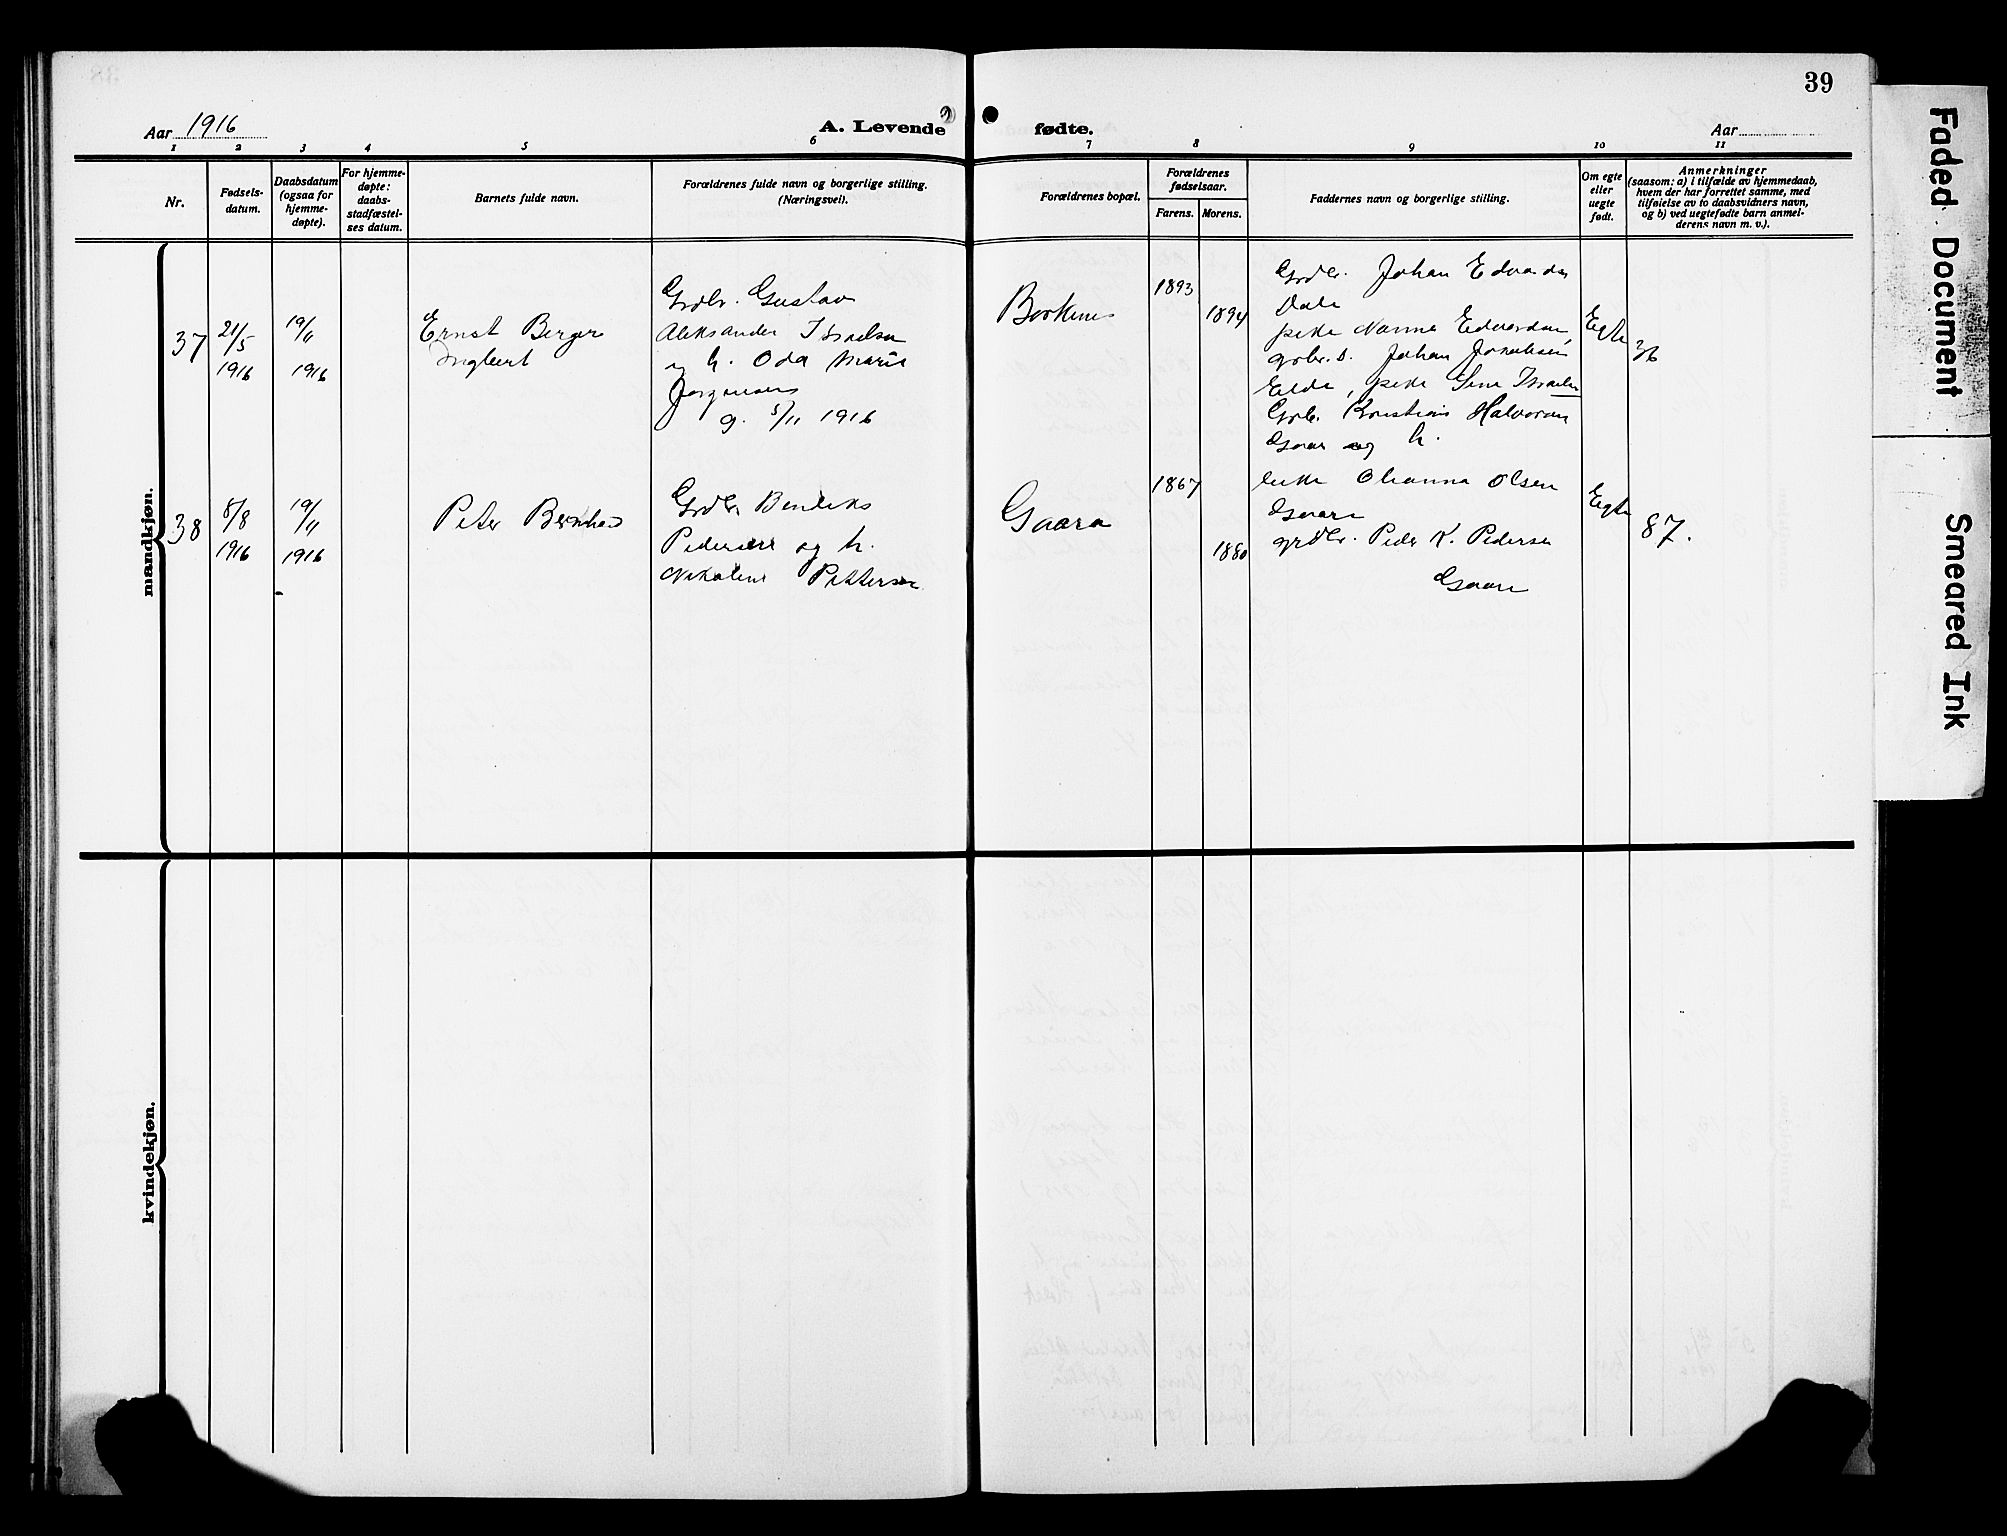 39
Aar 1916
A. Levende
fødte.
Aar
1 2 3 4 5 6 7 8 9 10 11
Nr.
Fødsels-
datum.
Daabsdatum
(ogsaa for
hjemme-
døpte).
For hjemme-
døpte:
daabs-
stadfæstel-
ses datum.
Barnets fulde navn.
Forældrenes fulde navn og borgerlige stilling.
(Næringsvei).
Forældrenes bopæl.
Forældrenes
fødselsaar.
Farens. Morens.
Faddernes navn og borgerlige stilling.
Om egte
eller
uegte
født.
Anmerkninger
(saasom: a) i tilfælde av hjemmedaab,
hvem der har forrettet samme, med
tilføielse av to daabsvidners navn,
og b) ved uegtefødte barn anmel-
derens navn m. v.).
mandkjøn.
37
21/5
1916
19/11
1916
Ernst Berger
Ingbert
Grdbr. Gustav
Aleksander Israelsen
og h. Oda Marie
Jørgensen
g. 5/11 1916
Borkenes
1893
1894
Grdbr. Johan Edvardsen
Dale
pike Nanna Edvardsen
grbr. s. Johan Jakobsen
Elde, pike Sine Israelsen
Grbr. Kristian Halvorsen
Gaare og h.
Egte
36
38
8/8
1916
19/11
1916
Peter Bernhard
Grdbr. Bendiks
Pedersen og h.
Nikoline Pettersen
Gaara
1867
1880
enke Oleanna Olsen
Gaare
grdbr. Peder K. Pedersen
Gaare
Egte
87.
kvindekjøn.
Faded Document
Smeared Ink